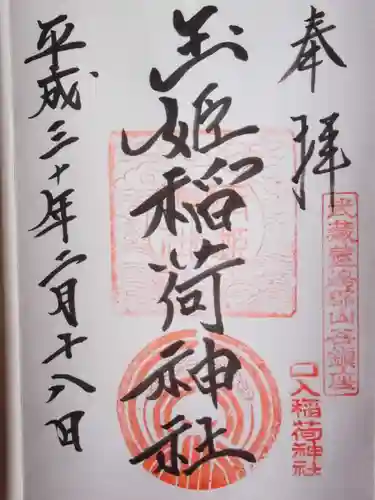 奉拝
武蔵国豊島郡山谷鎮座
口入稲荷神社
玉姫稲荷神社
平成三十年二月十八日